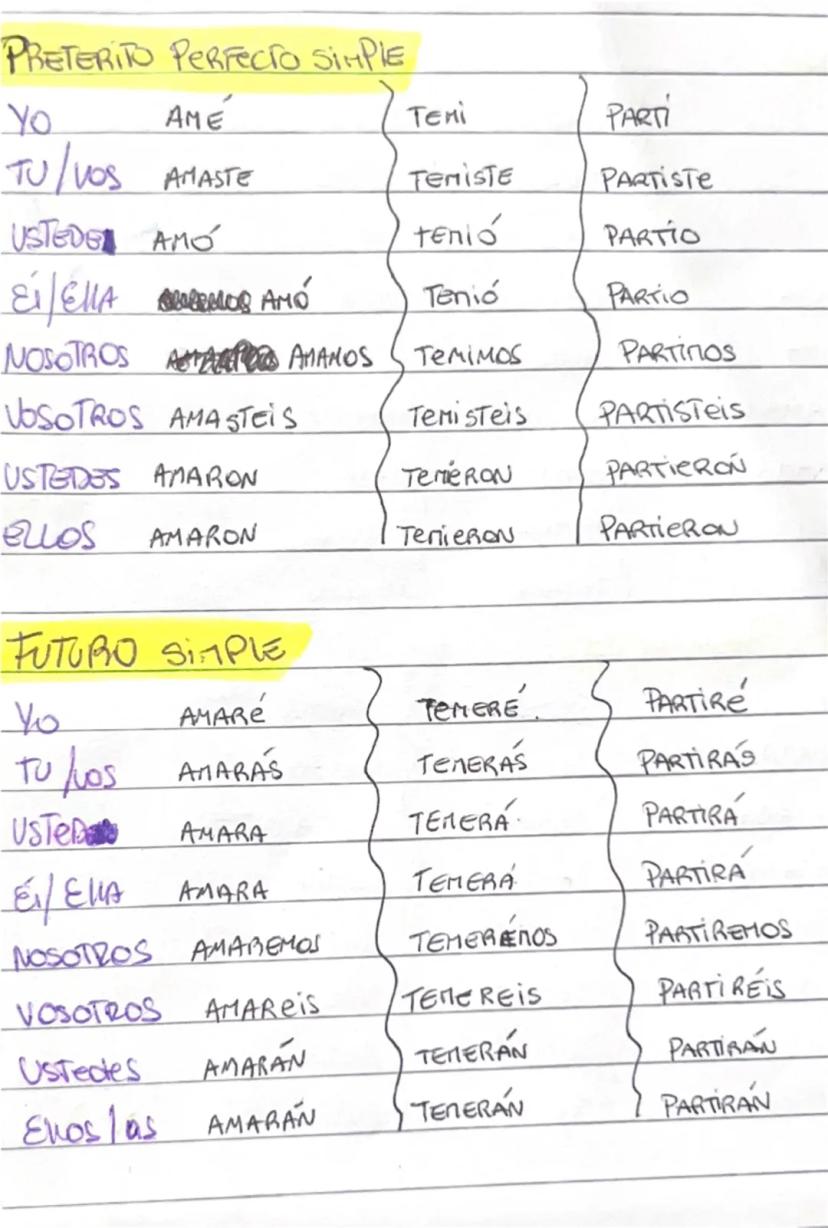 PRETERITO PERFECTO SIMPLE
YO AMÉ TEMI PARTÍ
TU/VOS AMASTE TEMISTE PARTISTE
USTED AMÓ TEMIÓ PARTÍO
ÉL/ELLA AMÓ TEMIÓ PARTIO
NOSOTROS AMAMOS TEMIMOS PARTIMOS
VOSOTROS AMASTEIS TEMISTEIS PARTISTEIS
USTEDES AMARON TEMÉRON PARTIERON
ELLOS AMARON TEMIERON PARTIERON
FUTURO SIMPLE
YO AMARÉ TEMERÉ. PARTIRÉ
TU/VOS AMARÁS TEMERÁS PARTIRÁS
USTED AMARA TEMERÁ PARTIRÁ
ÉL/ELLA AMARA TEMERÁ PARTIRÁ
NOSOTROS AMAREMOS TEMERÉMOS PARTIREMOS
VOSOTROS AMAREIS TEMEREIS PARTIRÉIS
USTEDES AMARÁN TEMERÁN PARTIRÁN
ELLOS/AS AMARÁN TEMERÁN PARTIRÁN